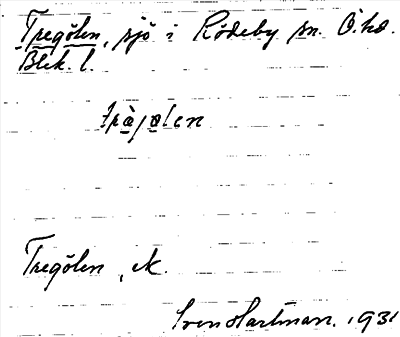 Tregölen, sjö i Rödeby sn. Ö. hd.
Blek. l.
tràjølen
Tregölen, ek.
Sven Hartman. 1931